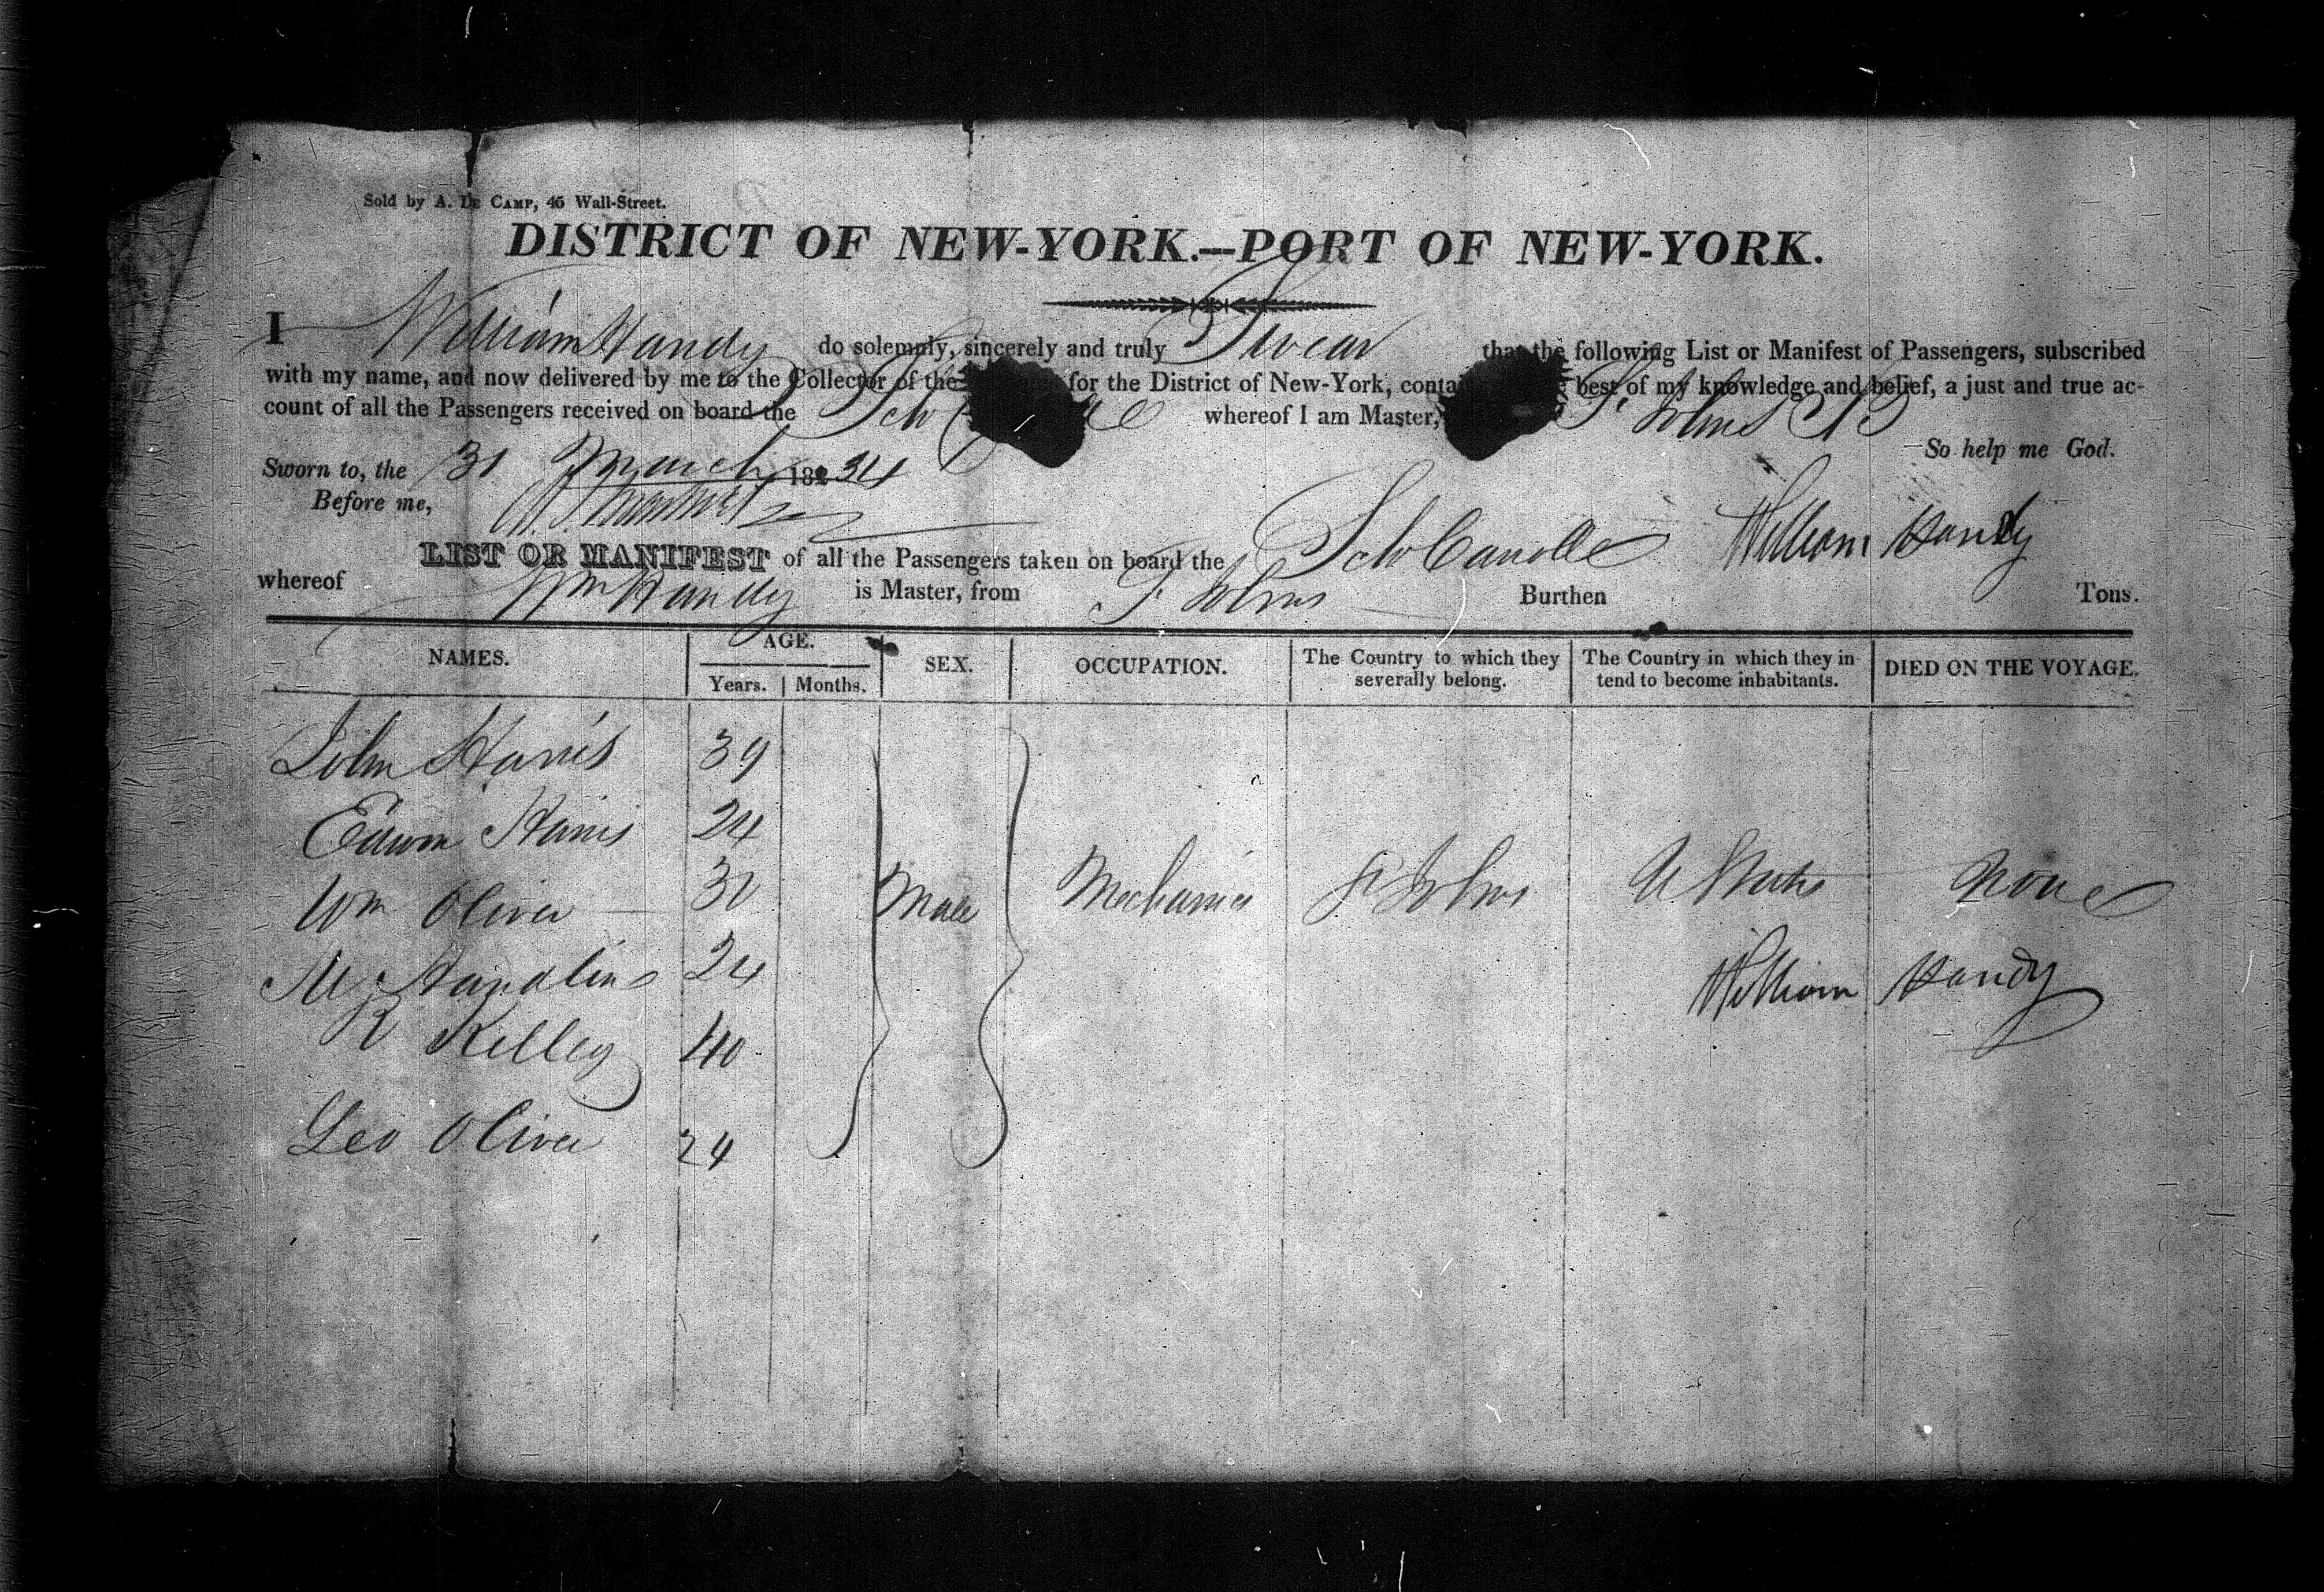 Sold by A. De Camp, 45 Wall-Street.
DISTRICT OF NEW-YORK.—PORT OF NEW-YORK.
I William Handy do solemnly, sincerely and truly Swear that the following List or Manifest of Passengers, subscribed
with my name, and now delivered by me to the Collector of the for the District of New-York, conta best of my knowledge and belief, a just and true ac-
count of all the Passengers received on board the Sch whereof I am Master, St Johns NB
So help me God.
Sworn to, the 31 March 1834
Before me,
William Handy
LIST OR MANIFEST of all the Passengers taken on board the Sch
whereof Wm Handy is Master, from St Johns Burthen Tons.
NAMES. AGE. SEX. OCCUPATION. The Country to which they severally belong. The Country in which they intend to become inhabitants. DIED ON THE VOYAGE.
Years. Months.
John Harris 39
Edwin Harris 24
Wm Oliver 30 Male Mechanics St Johns U States None
M 24 William Handy
R Kelley 40
Geo Oliver 24